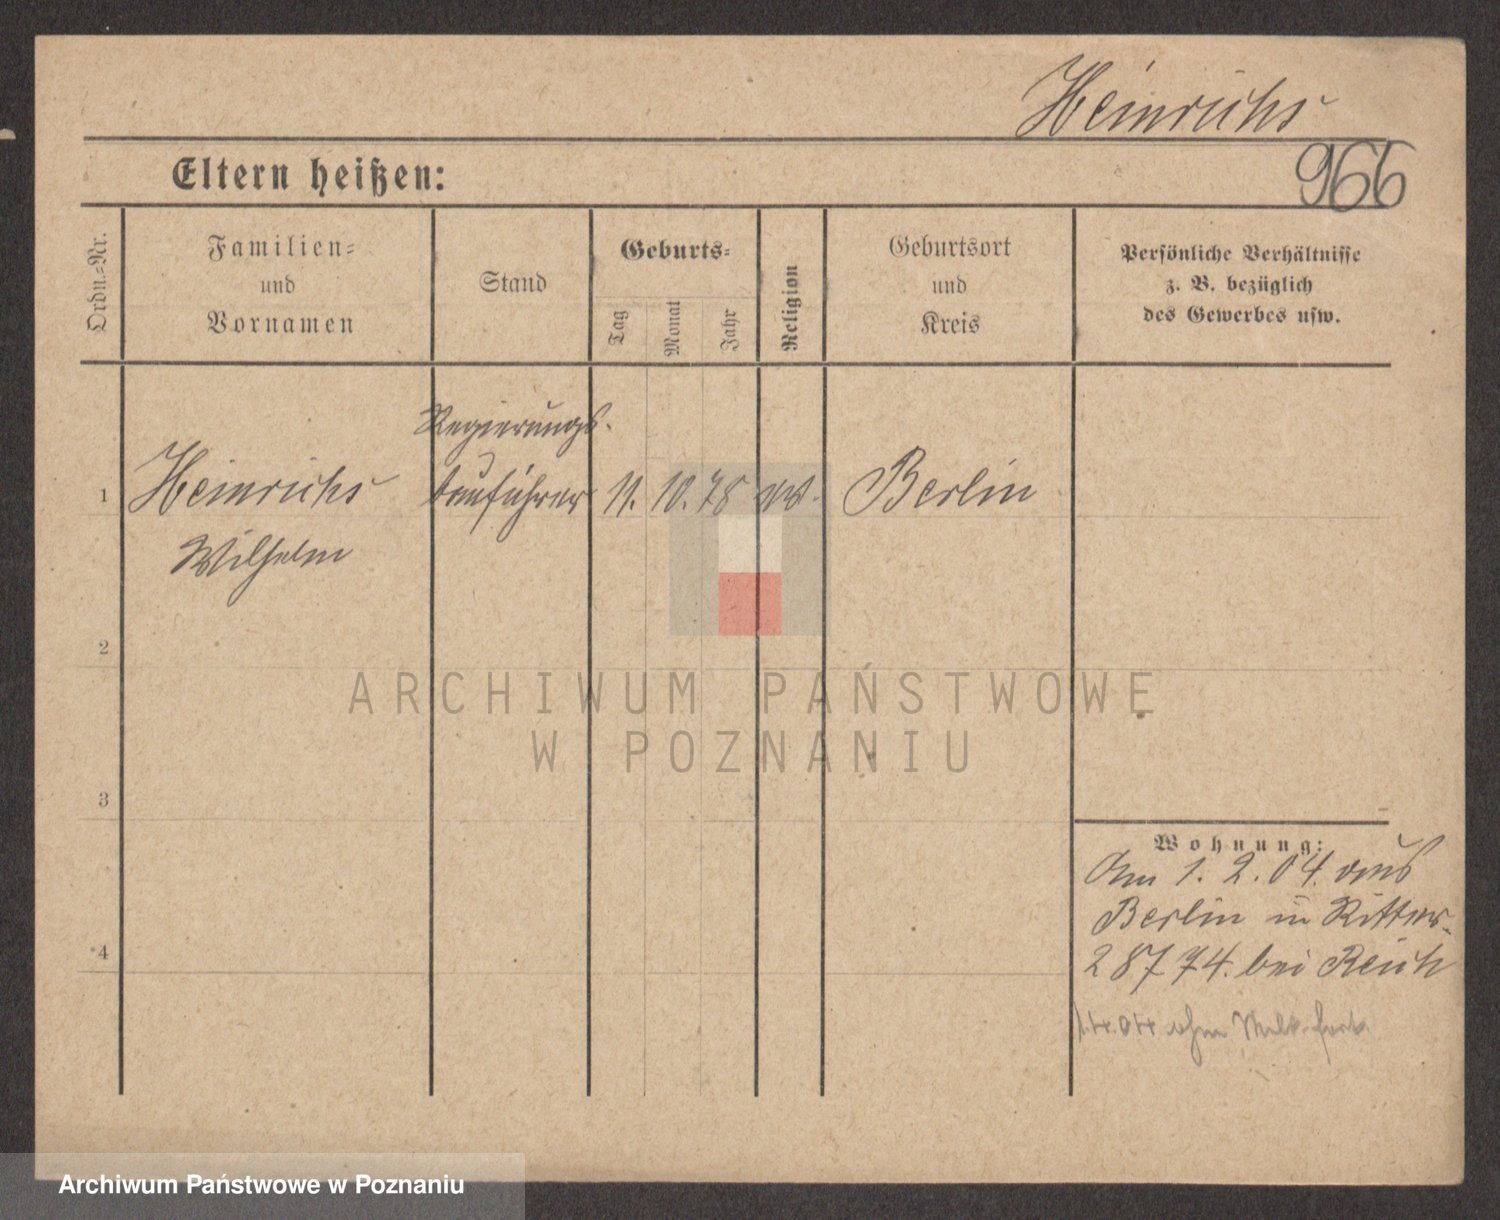 Heinrichs
966
Eltern heißen:
Ordn.-Nr.
Familien-
und
Vornamen
Stand
Geburts-
Tag
Monat
Jahr
Religion
Geburtsort
und
Kreis
Persönliche Verhältnisse
z. B. bezüglich
des Gewerbes usw.
Regierungs-
1 Heinrichs bauführer 11. 10. 78 ev. Berlin
Wilhelm
2
3
4
Wohnung:
Am 1. 2. 04. aus
Berlin in Ritter-
bei Reich
1.4.04 ohne fort
ARCHIWUM PAŃSTWOWE
W POZNANIU
Archiwum Państwowe w Poznaniu